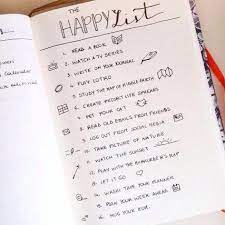 THE
HAPPY List
1. READ A BOOK
2. WATCH A TV SERIES
3. WRITE ON YOUR JOURNAL
4. PLAY LOTRO
5. STUDY THE MAP OF MIDDLE EARTH
6. CREATE PROJECT LIFE SPREADS
7. PET YOUR CAT
8. READ OLD EMAILS FROM FRIENDS
9. LOG OUT FROM SOCIAL MEDIA
10. TAKE PICTURE OF NATURE
11. WATCH THE SUNSET
12. PLAY WITH THE MARAUDER'S MAP
13. LET IT GO
14. WASHI TAPE YOUR PLANNER
15. PLAN YOUR WEEK AHEAD
16. HUG YOUR
Calendar